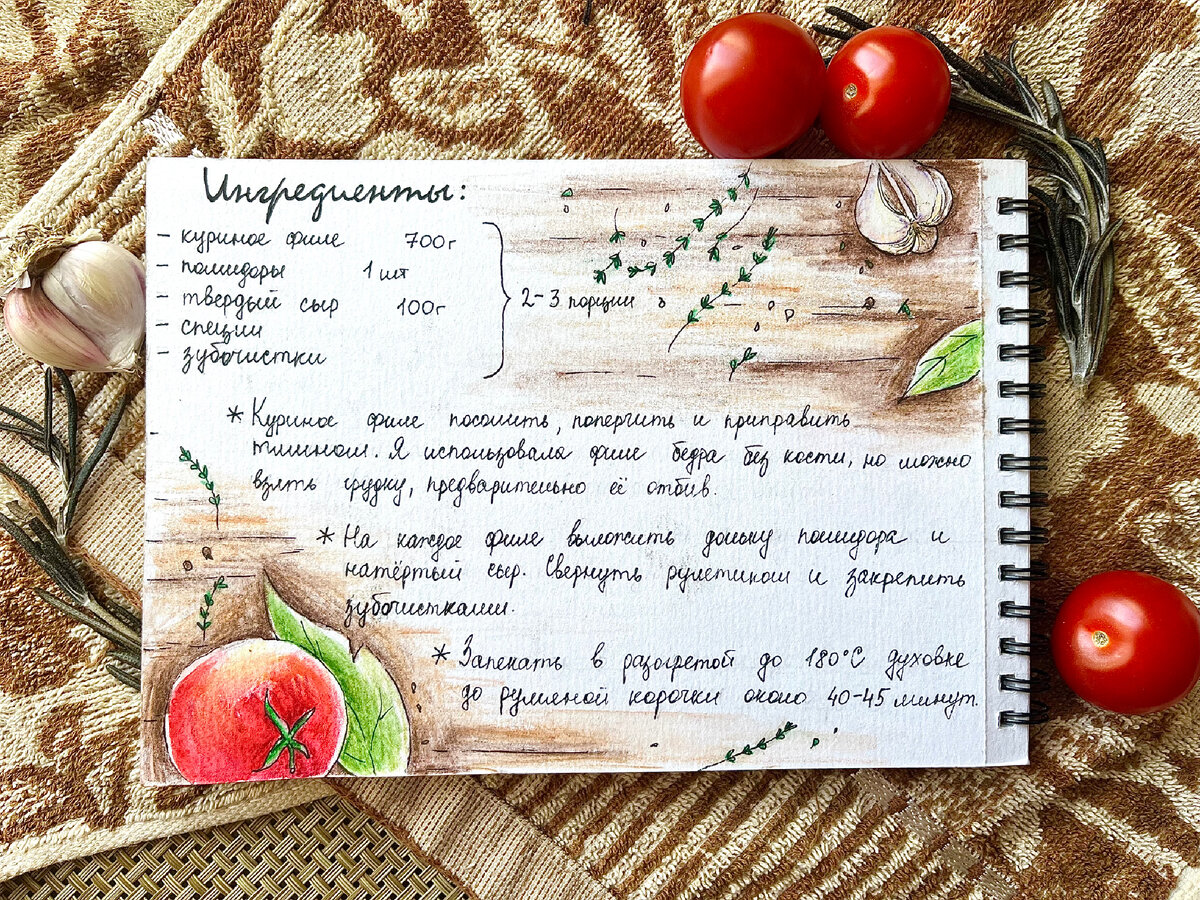 Ингредиенты:
- куриное филе 700г
- помидоры 1 шт
- твердый сыр 100г
- специи
- зубочистки
2-3 порции
* Куриное филе посолить, поперчить и приправить
тмином. Я использовала филе бедра без кости, но можно
взять грудку, предварительно её отбив.
* На каждое филе выложить дольку помидора и
натёртый сыр. Свернуть рулетиком и закрепить
зубочистками.
* Запекать в разогретой до 180°С духовке
до румяной корочки около 40-45 минут.